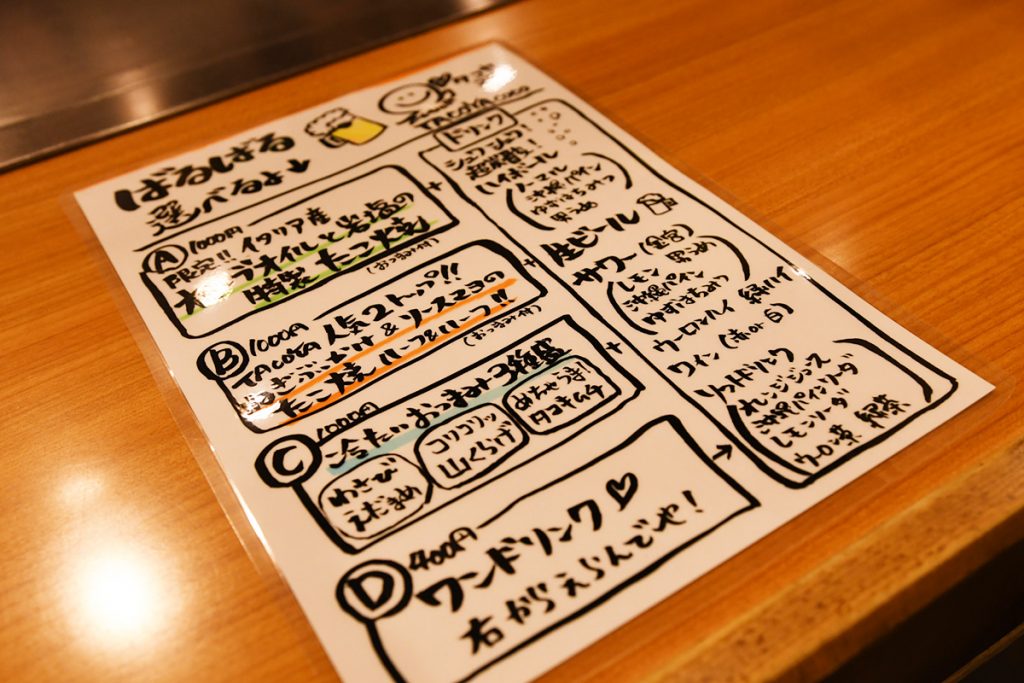 ばるばる
選べるよ↓
TACOYA coco
Ⓐ 1000円
限定!! イタリア産
オーラオイルと岩塩の
特製 たこ焼
(おつまみ付)
Ⓑ 1000円
TACOYA 人気2トップ!!
ぶっかけ & ソースマヨの
たこ焼 ハーフ&ハーフ!!
(おつまみ付)
Ⓒ 1000円
冷たいおつまみ3種盛
わさび
えだまめ
コリコリッ
山くらげ
めちゃつま!
タコキムチ
Ⓓ 400円
ワンドリンク♡
右からえらんでや!
ドリンク
シュワシュワ!
超炭酸!
ハイボール
(ノーマル
沖縄パイン
ゆずはちみつ
男うめ)
生ビール
サワー (金宮
男うめ
レモン
沖縄パイン
ゆずはちみつ)
ウーロンハイ 緑ハイ
ワイン (赤or白)
ソフトドリンク
(オレンジジュース
沖縄パインソーダ
レモンソーダ
ウーロン茶 緑茶)